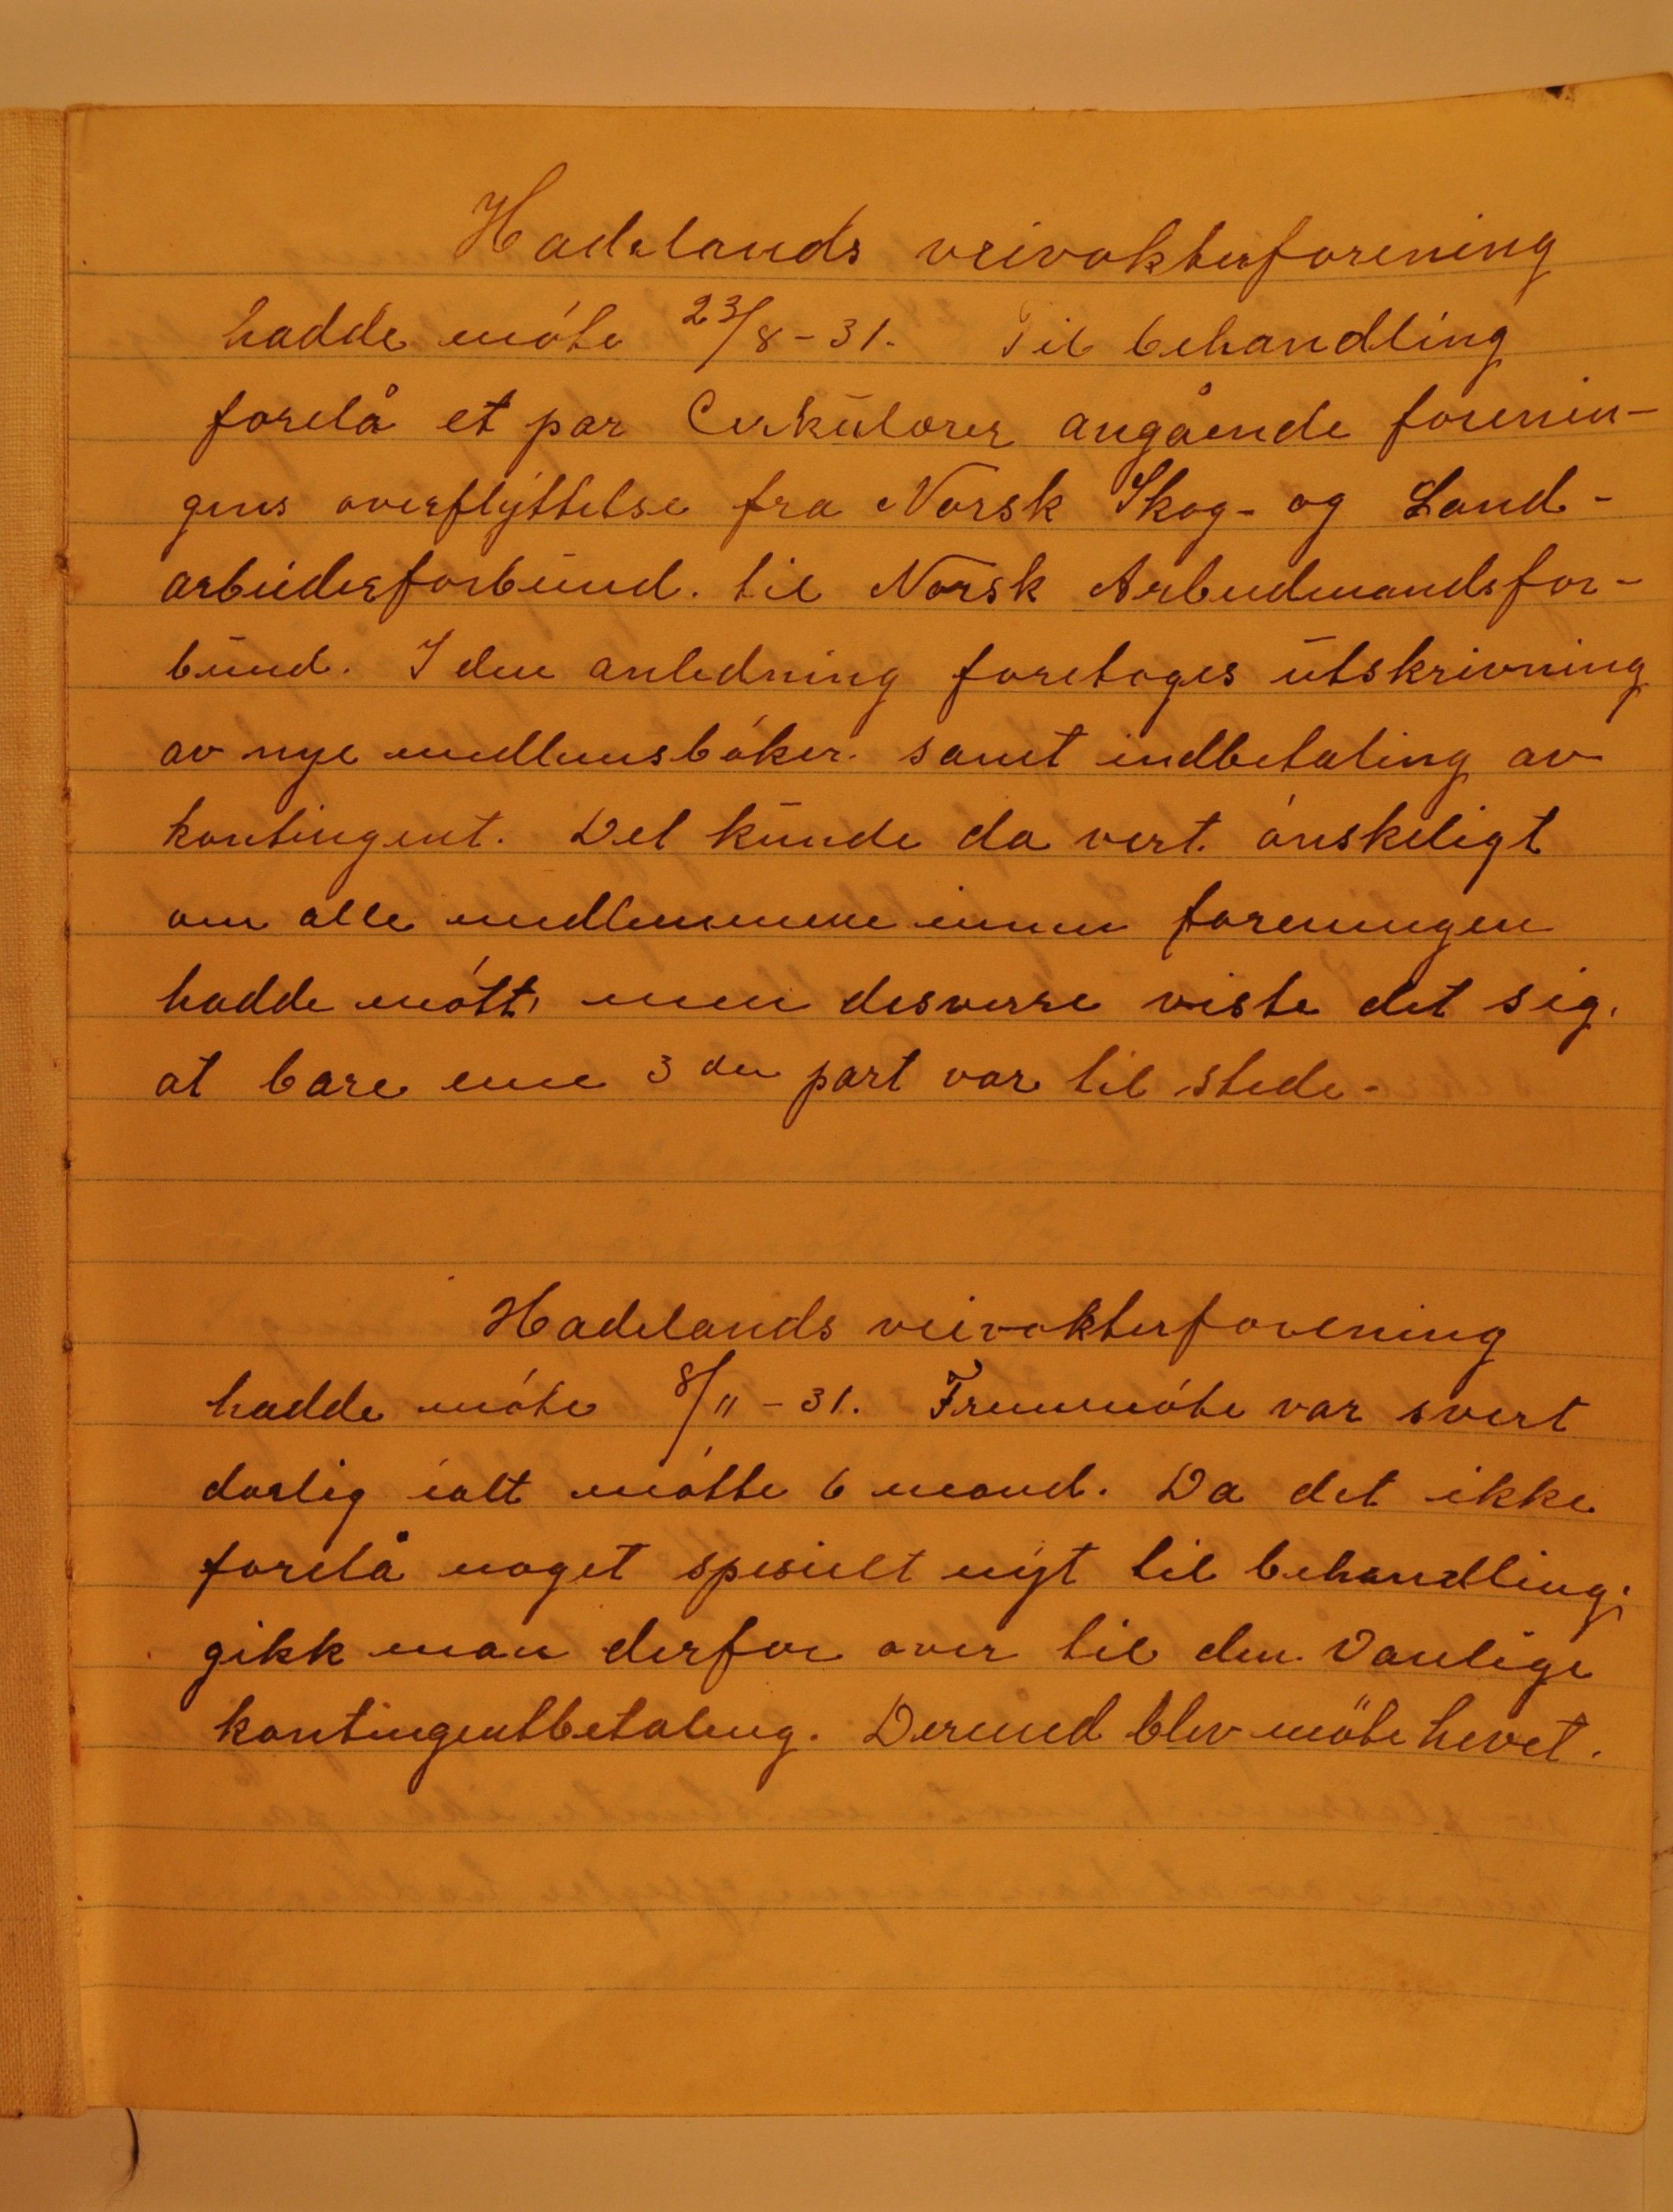 Hadelands veivokterforening
hadde móte 23/8-31. Til behandling
forelå et par Cirkulærer angående forenin-
gens overflyttelse fra Norsk Skog- og Land-
arbeiderforbund. til Norsk Arbeidmandsfor-
bund. I den anledning foretoges utskrivning
av nye medlemsbóker. samt indbetaling av
kontingent. Det kunde da vert. ónskeligt
om alle medlemmene innen foreningen
hadde mótt, men desverre viste det sig.
at bare enne 3den part var til stede.
Hadelands veivokterforening
hadde móte 8/11-31. Fremmóte var svert
darlig ialt mótte 6 mand. Da det ikke
forelå noget spesielt nyt til behandling;
gikk man derfor over til den Vanlige
kontingentbetaling. Dermed blev möte hevet.